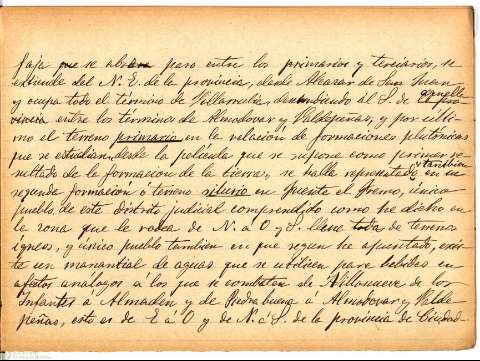 faja que se abre paso entre los primarios y terciarios, se
extiende del N. E. de la provincia, desde Alcazar de San Juan
y ocupa todo el término de Villarrubia, descendiendo al S. de aquella pro-
vincia entre los términos de Almodovar y Valdepeñas, y por ulti-
mo el terreno primario en la relación de formaciones plutónicas
que se estudian desde la pelicula que se supone como primer re-
sultado de la formacion de la tierra, se halla representado tambien en su
segunda formacion ó terreno silurio en Puente el Fresno, único
pueblo de este distrito judicial comprendido como he dicho en
la zona que le rodea de N. a O y S. llena toda de terrenos
igneos, y único pueblo tambien en que segun he apuntado, exis-
te un manantial de aguas que se utilicen para bebidas en
afectos análogos á los que se combaten de Villanueva de los
Infantes a Almaden y de Piedrabuena á Almodovar y Valde-
peñas, esto es de E á O y de N. á S. de la provincia de Ciudad-